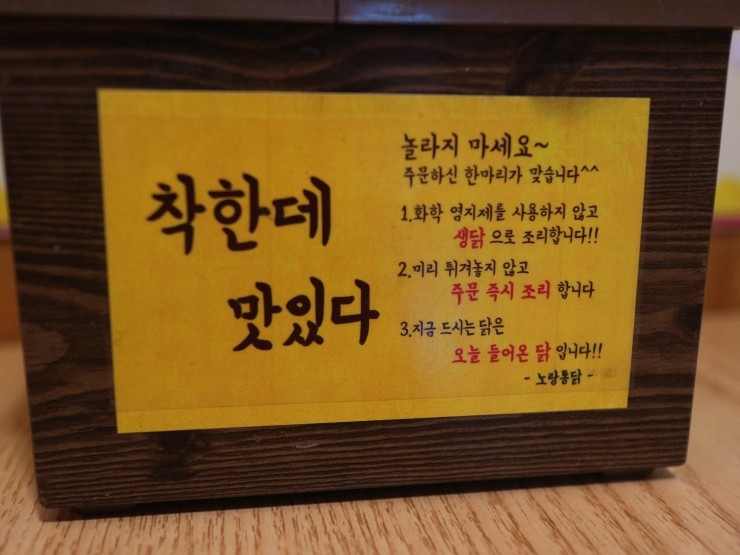 착한데
맛있다
놀라지 마세요~
주문하신 한마리가 맞습니다^^
1.화학 염지제를 사용하지 않고
생닭 으로 조리합니다!!
2.미리 튀겨놓지 않고
주문 즉시 조리 합니다
3.지금 드시는 닭은
오늘 들어온 닭 입니다!!
- 노랑통닭 -